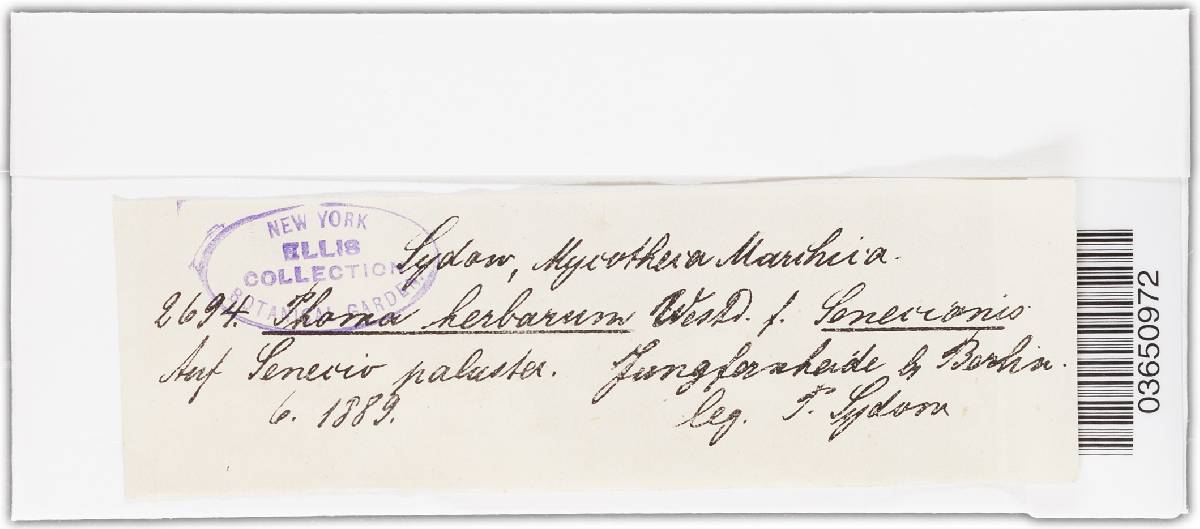 NEW YORK
ELLIS
COLLECTION
BOTANICAL GARDEN.
Sydow, Mycotheca Marchica.
2694. Phoma herbarum Westd. f. Senecionis
Auf Senecio paluster. Jungfernheide b. Berlin.
6. 1889. leg. P. Sydow
03650972